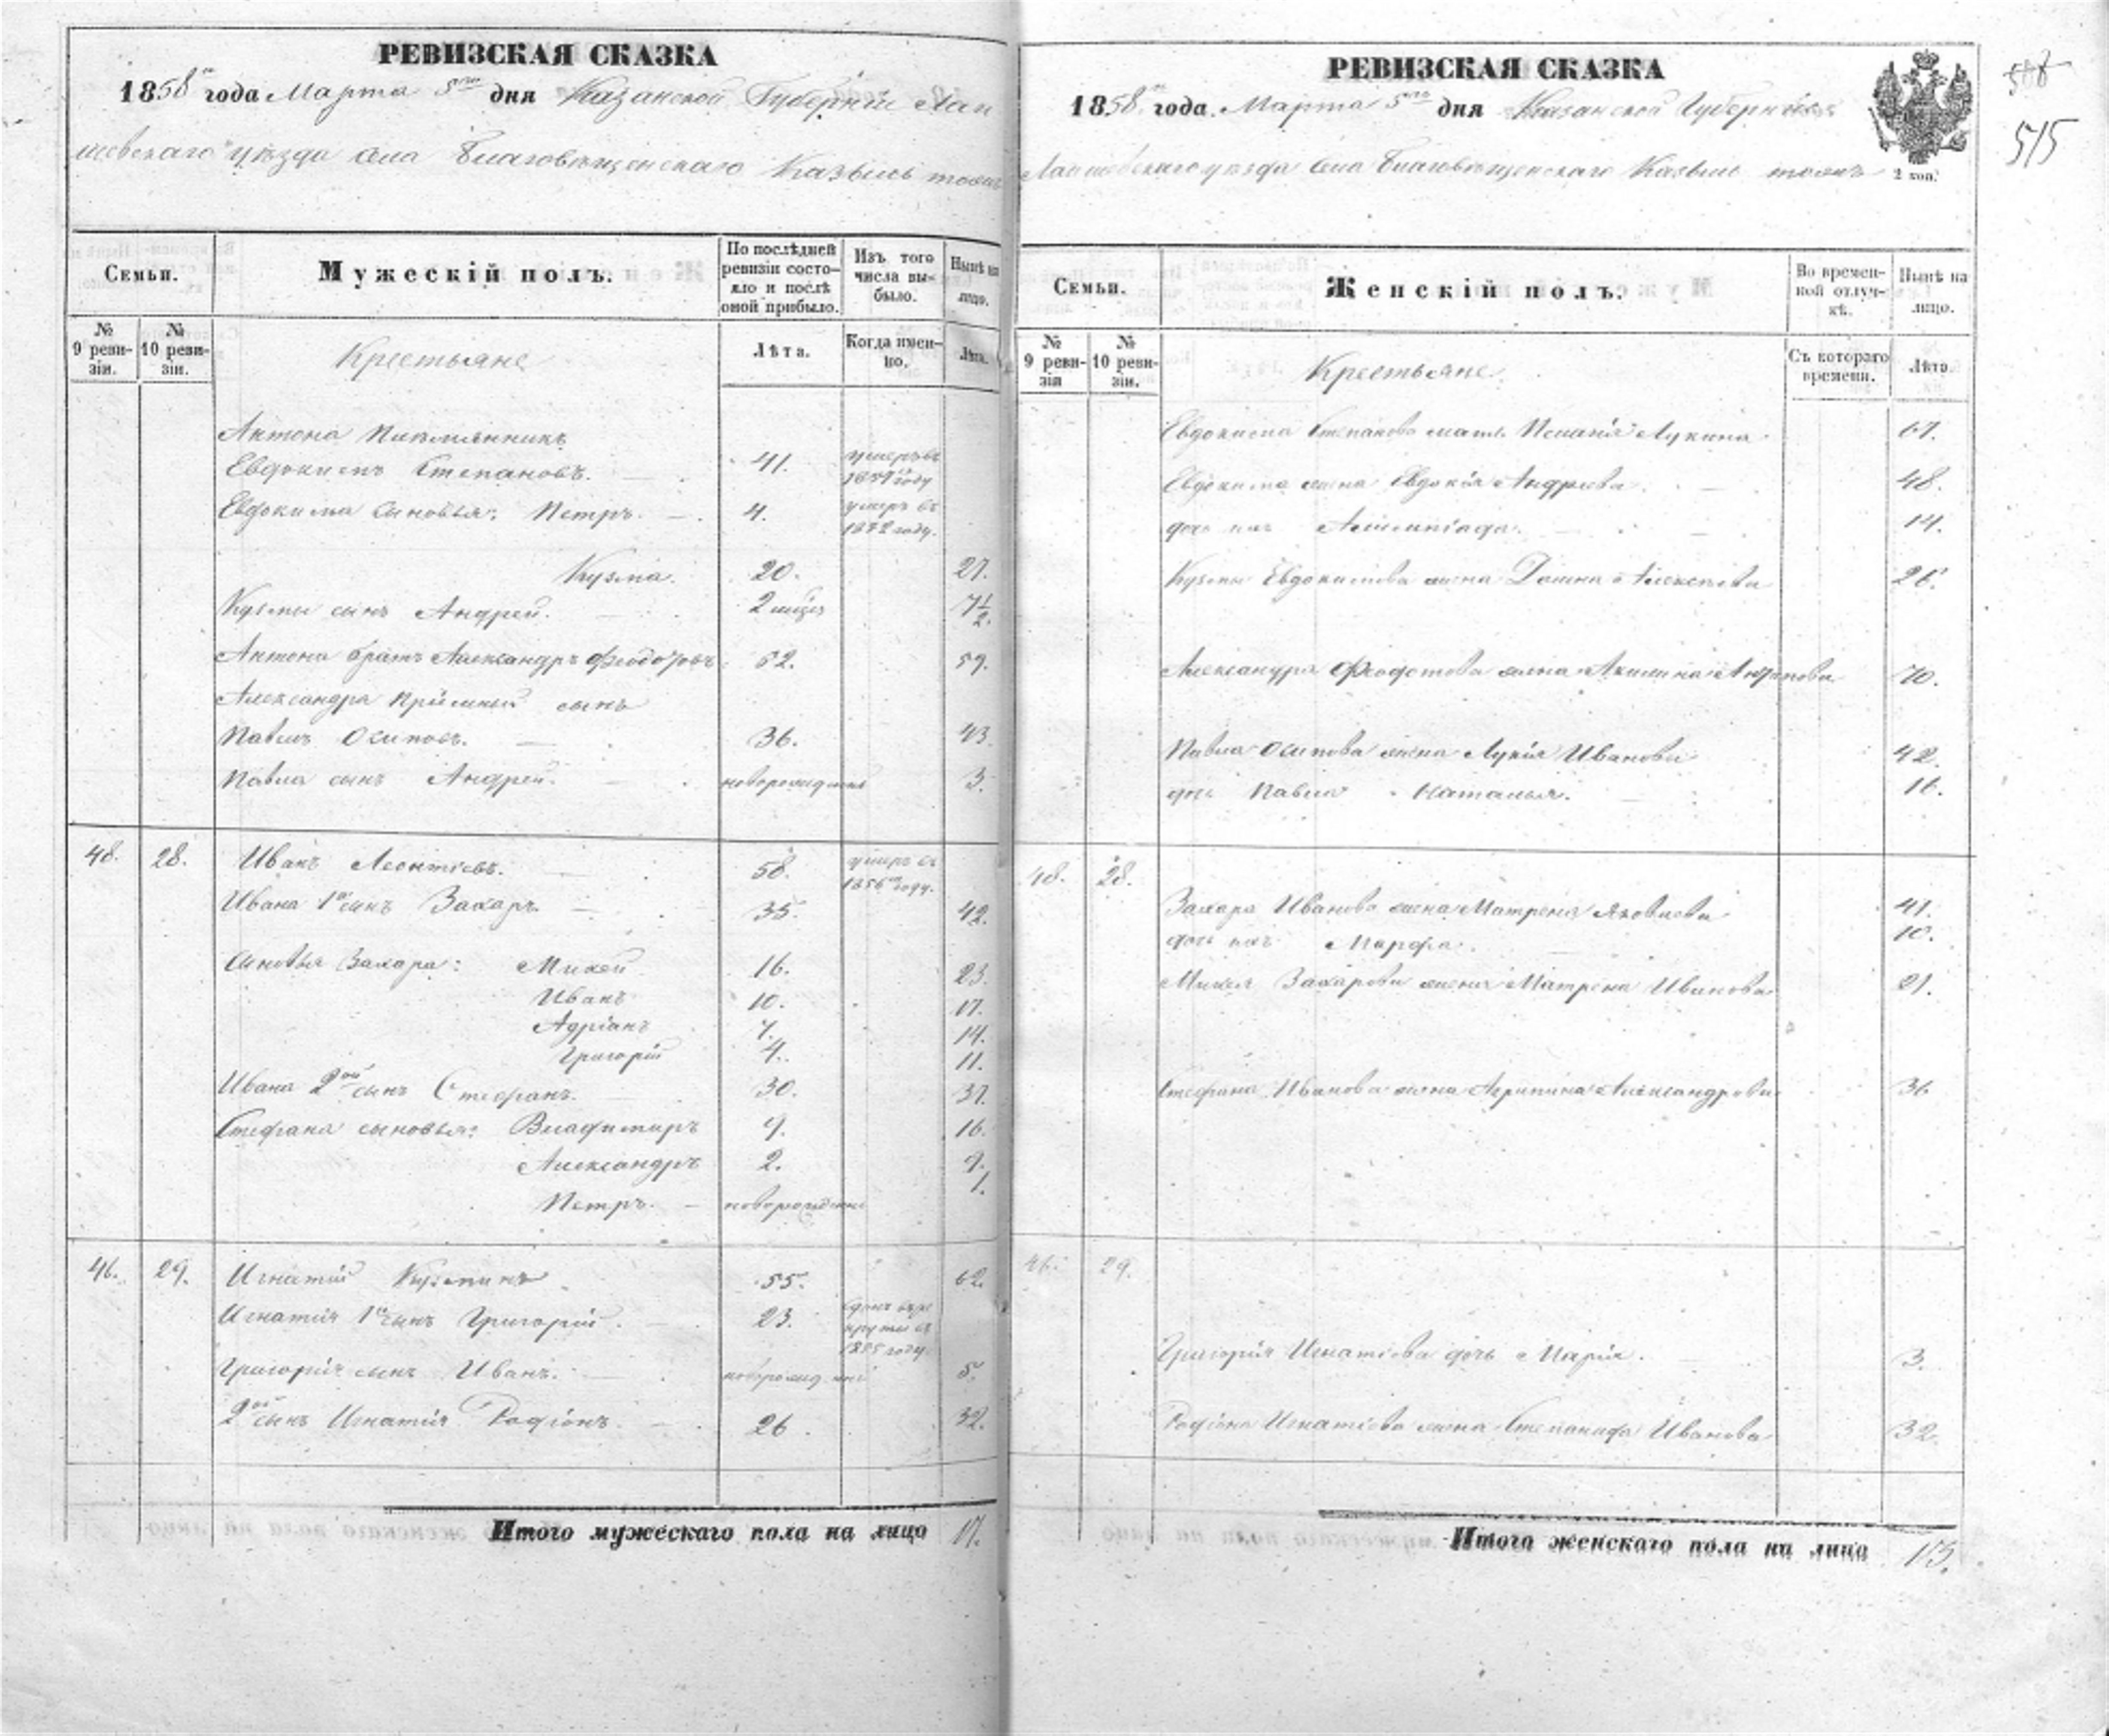 РЕВИЗСКАЯ СКАЗКА
1858го года Марта 5го дня Казанской Губернии Лаи
шевскаго уѣзда села Благовѣщенскаго Казыли тожъ
Семьи.
Мужескій полъ.
По послѣдней ревизіи состояло и послѣ оной прибыло.
Изъ того числа выбыло.
Нынѣ на лицо.
№ 9 ревизіи.
№ 10 ревизіи.
Крестьяне
Лѣта.
Когда именно.
Лѣта.
Антона племянникъ
Евдокимъ Степановъ. 41. умеръ въ году
Евдокима сыновья: Петръ. 4. умеръ въ году.
Кузма. 20. 27.
Кузмы сынъ Андрей. 2 7 1/2.
Антона братъ Александръ Феодотовъ 52. 59.
Александра пріемный сынъ
Павелъ Осиповъ. 36. 43.
Павла сынъ Андрей. новорожденный 3.
48. 28. Иванъ Леонтіевъ. 58. умеръ въ 1856м году.
Ивана 1й сынъ Захаръ 35. 42.
Сыновья Захара: Михей 16. 23.
Иванъ 10. 17.
Адріанъ 7. 14.
Григорій 4. 11.
Ивана 2ой сынъ Стефанъ. 30. 37.
Стефана сыновья: Владимиръ 9. 16.
Александръ 2. 9.
Петръ. новорожденный 1.
46. 29. Игнатій Кузминъ 55. 62.
Игнатія 1й сынъ Григорій. 23. въ рекруты въ 1855 году.
Григорія сынъ Иванъ. новорожденный 5.
2ой сынъ Игнатія Родіонъ. 26. 32.
Итого мужескаго пола на лицо 17.
РЕВИЗСКАЯ СКАЗКА
1858го года Марта 5го дня Казанской Губерніи
Лаишевскаго уѣзда села Благовѣщенскаго Казыли тожъ
2 коп.
515
Семьи.
Женскій полъ.
Во временной отлучкѣ.
Нынѣ на лицо.
№ 9 ревизіи
№ 10 ревизіи.
Крестьяне.
Съ котораго времени.
Лѣта.
Евдокима Степанова мать Лукина 67.
Евдокима жена Евдокія Андреева. 48.
дочь ихъ 14.
Кузмы Евдокимова жена Домна Алексѣева 26.
Александра Феодотова жена Акилина 70.
Павла Осипова жена Лукія Иванова 42.
дочь Павла Наталья. 16.
48. 28.
Захара Иванова жена Матрена Яковлева 41.
дочь ихъ Марфа. 10.
Михея Захарова жена Матрена Иванова 21.
Стефана Иванова жена Агрипина Александрова 36
46. 29.
Григорія Игнатіева дочь Марія. 3.
Родіона Игнатіева жена Степанида Иванова 32.
Итого женскаго пола на лицо 13.